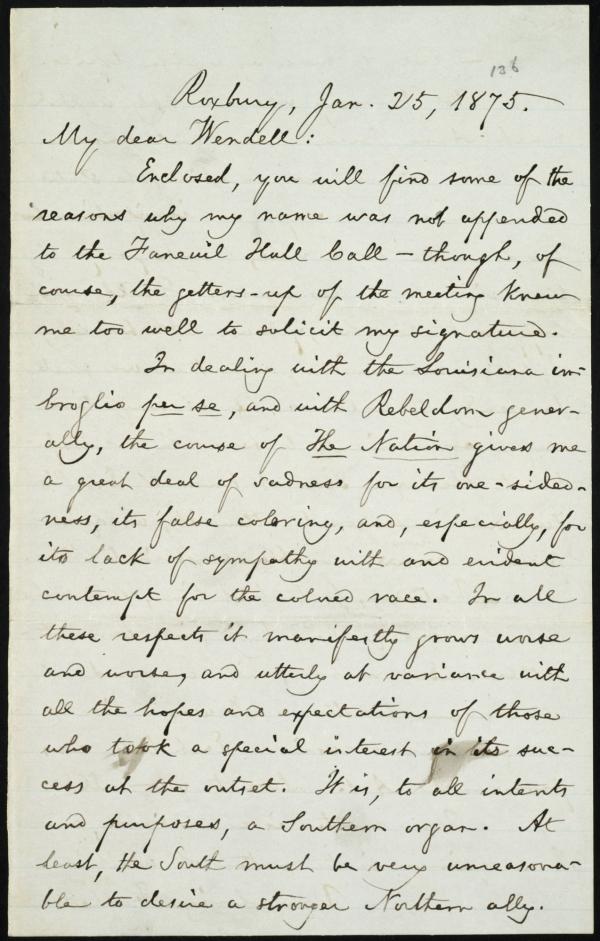 136
Roxbury, Jan. 25, 1875.
My dear Wendell:
Enclosed, you will find some of the
reasons why my name was not appended
to the Faneuil Hall Call — though, of
course, the getters-up of the meeting knew
me too well to solicit my signature.
In dealing with the Louisiana im-
broglio per se, and with Rebeldom gener-
ally, the course of The Nation gives me
a great deal of sadness for its one-sided-
ness, its false coloring, and, especially, for
its lack of sympathy with and evident
contempt for the colored race. In all
these respects it manifestly grows worse
and worse, and utterly at variance with
all the hopes and expectations of those
who took a special interest in its suc-
cess at the outset. It is, to all intents
and purposes, a Southern organ. At
least, the South must be very unreasona-
ble to desire a stronger Northern ally.